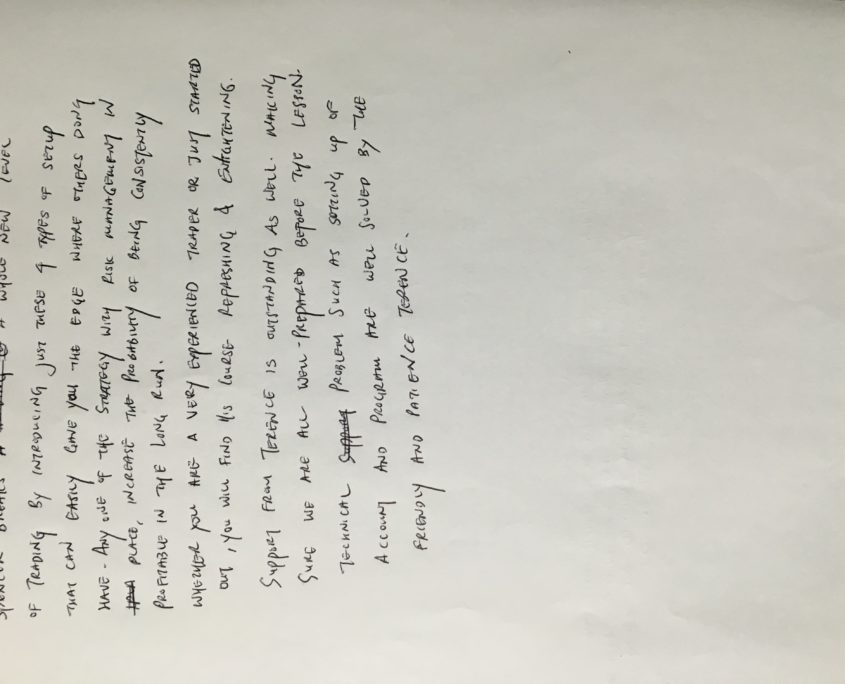 SPENCER BREAKS A WHOLE NEW LEVEL
OF TRADING BY INTRODUCING JUST THESE 4 TYPES OF SETUP
THAT CAN EASILY GAVE YOU THE EDGE WHERE OTHERS DONG
HAVE - ANY ONE OF THE STRATEGY WITH RISK MANAGEMENT IN
PLACE, INCREASE THE PROBABILITY OF BEING CONSISTENTLY
PROFITABLE IN THE LONG RUN.
WHETHER YOU ARE A VERY EXPERIENCED TRADER OR JUST STARTED
OUT, YOU WILL FIND HIS COURSE REFRESHING & ENLIGHTENING.
SUPPORT FROM TERENCE IS OUTSTANDING AS WELL. MAKING
SURE WE ARE ALL WELL-PREPARED BEFORE THE LESSON.
TECHNICAL PROBLEM SUCH AS SETTING UP OF
ACCOUNT AND PROGRAM ARE WELL SOLVED BY THE
FRIENDLY AND PATIENCE TERENCE.